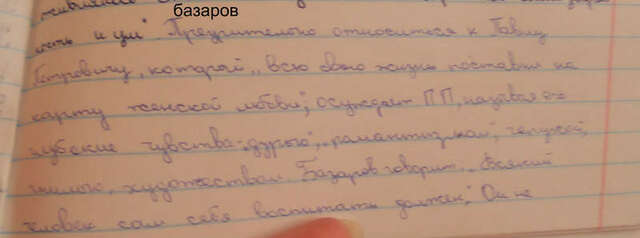 базаров
ость и ум" Презрительно относиться к Павлу
Петровичу, который "всю свою жизнь поставил на
карту женской любви"; осуждает ПП, называя
чувства "дурью", "романтизмом", чепухой,
гнилью, художеством. Базаров говорит "Всякий
человек сам себя воспитать должен," Он не